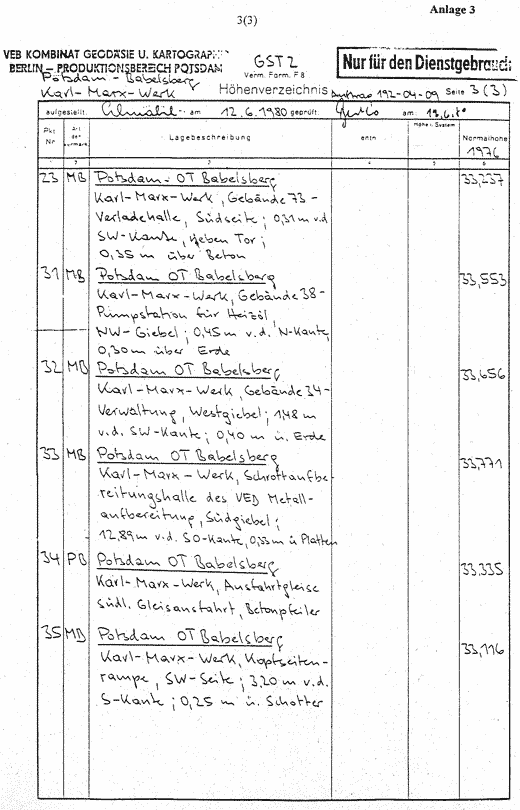 Anlage 3
3(3)
VEB KOMBINAT GEODÄSIE U. KARTOGRAPH
BERLIN – PRODUKTIONSBEREICH POTSDAM
GST 2
Verm. Form. F 8
Nur für den Dienstgebrauch
Potsdam - Babelsberg
Karl-Marx-Werk
Höhenverzeichnis
Auftrag 192-04-09 Seite 3(3)
aufgestellt: am 12.6.1980 geprüft: am 13.6.80
Pkt Nr
Art der
Lagebeschreibung
entn
Höhe i. System
Normalhöhe
1976
1 2 3 4 5 6
23 MB Potsdam - OT Babelsberg 33,237
Karl-Marx-Werk, Gebäude 73-
Verladehalle, Südseite; 0,31 m v.d
SW-Kante, neben Tor;
0,35 m über Beton
31 MB Potsdam OT Babelsberg 33,553
Karl-Marx-Werk, Gebäude 38-
Pumpstation für Heizöl
NW-Giebel; 0,45 m v.d. N-Kante,
0,30 m über Erde
32 MB Potsdam OT Babelsberg 33,656
Karl-Marx-Werk, Gebäude 34-
Verwaltung, Westgiebel; 1,48 m
v.d. SW-Kante; 0,40 m ü. Erde
33 MB Potsdam OT Babelsberg 33,771
Karl-Marx-Werk, Schrottaufbe-
reitungshalle des VEB Metall-
aufbereitung, Südgiebel;
12,89 m v.d. SO-Kante, 0,33 m ü Platten
34 PB Potsdam OT Babelsberg 33,335
Karl-Marx-Werk, Ausfahrtgleise
südl. Gleisausfahrt, Betonpfeiler
35 MB Potsdam OT Babelsberg 33,116
Karl-Marx-Werk, Kopfseiten-
rampe, SW-Seite; 3,20 m v.d.
S-Kante; 0,25 m ü. Schotter